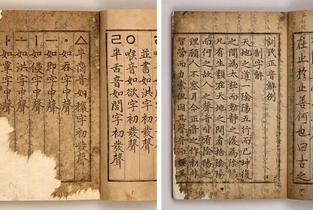 並書如洪字初發聲
ㅇ喉音如欲字初發聲
ㄹ半舌音如閭字初發聲
ㅿ半齒音如穰字初發聲
ㆍ如呑字中聲
ㅡ如即字中聲
ㅣ如侵字中聲
ㅗ如洪字中聲
ㅏ如覃字中聲
在止於止善何也曰古之
訓民正音解例
制字解
天地之道一陰陽五行而已坤復
之間為太極而動靜之後為陰陽
凡有生類在天地之間者捨陰陽
而何之故人之聲音皆有陰陽之
理顧人不察耳今正音之作初非
智營而力索但因其聲音而極其